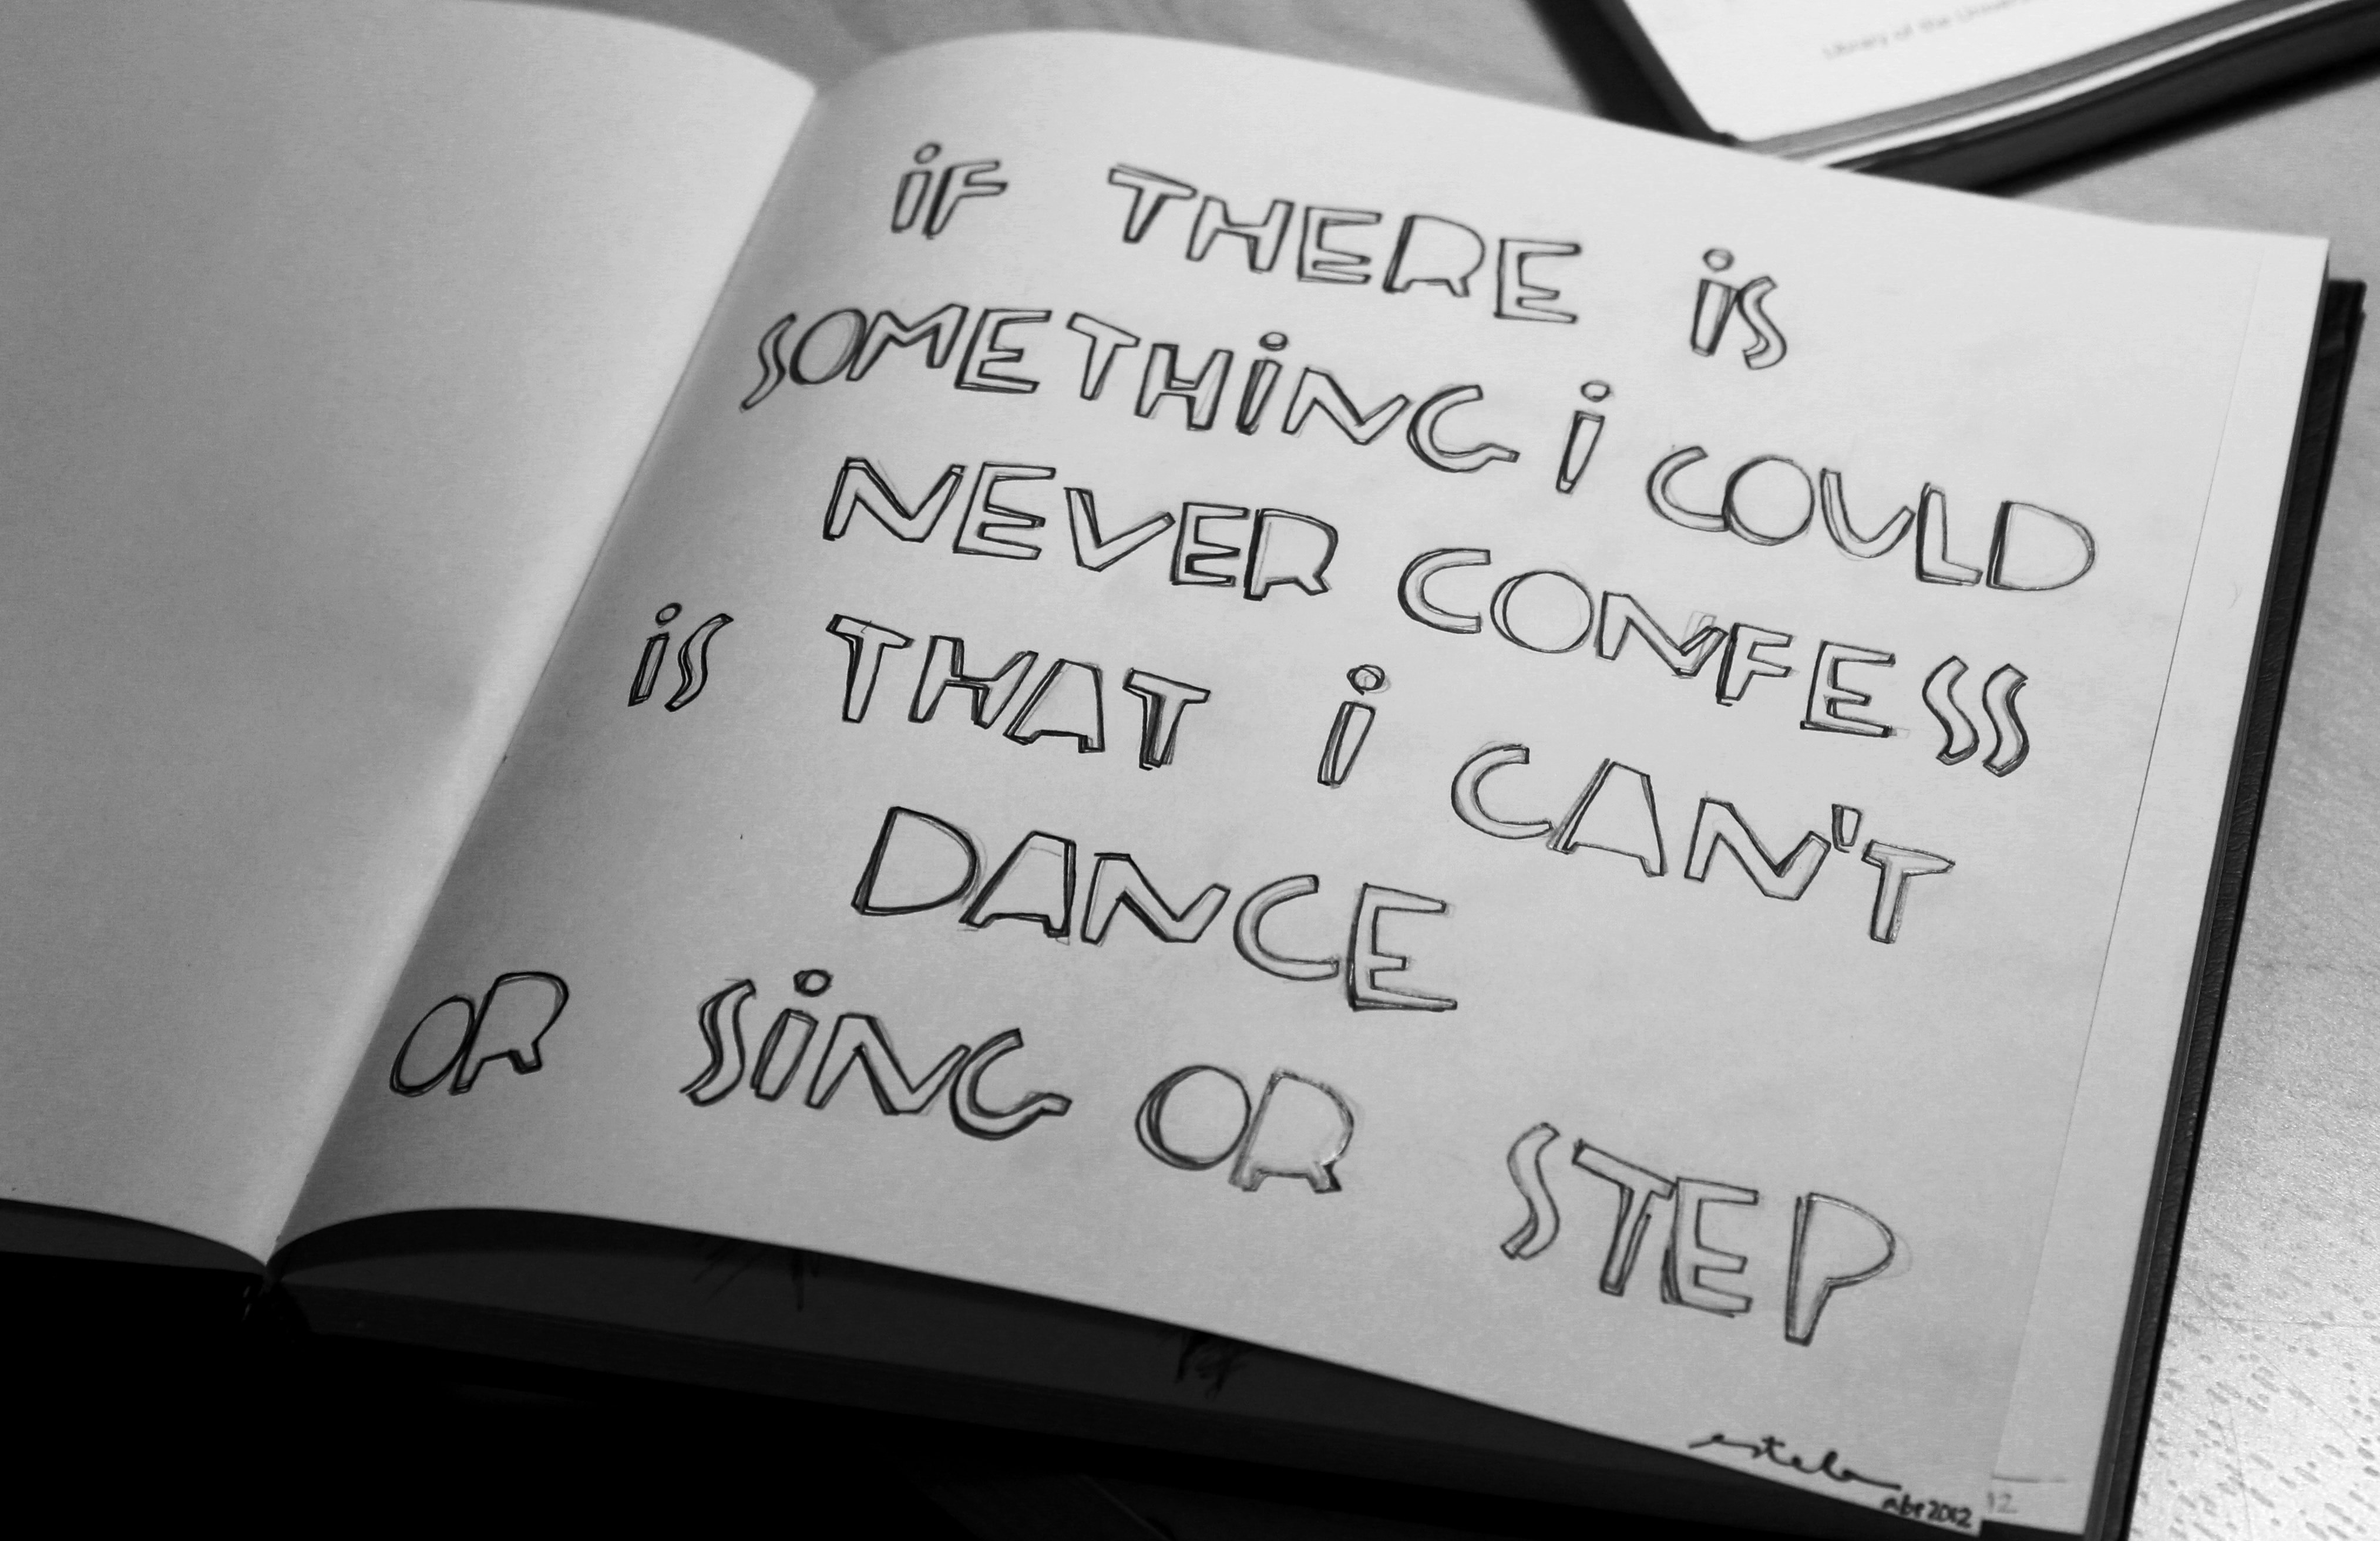 Library of the
iF THERE iS
SOMETHiNG i COULD
NEVER CONFESS
iS THAT i CAN'T
DANCE
OR SiNG OR STEP
estela
abr 2012
12